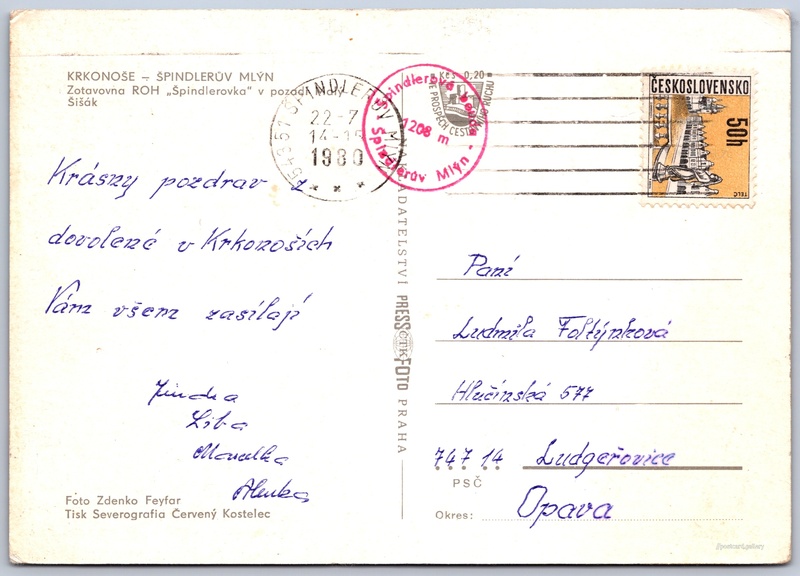 KRKONOŠE – ŠPINDLERŮV MLÝN
Zotavovna ROH „Špindlerovka" v pozadí Malý
Šišák
54351 ŠPINDLERŮV MLÝN
22.-7
1980
* * *
Špindlerova bouda
1208 m
Špindlerův Mlýn
Kčs 0,20
VE PROSPĚCH
ČESKOSLOVENSKO
50h
TELČ
Krásny pozdrav z
dovolené v Krkonoších
Vám všem zasílají
Jindra
Liba
Alenka
Foto Zdenko Feyfar
Tisk Severografia Červený Kostelec
VYDAVATELSTVÍ PRESSFOTO PRAHA
ČTK
Paní
Ludmila Foltýnková
Hlučínská 577
747 14 Ludgeřovice
PSČ
Okres: Opava
postcard.gallery